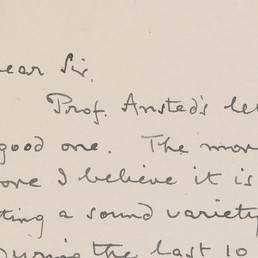 ear Sir,
Prof. Ansted's le
good one. The mor
ore I believe it is
ting a sound variety
uring the last 10